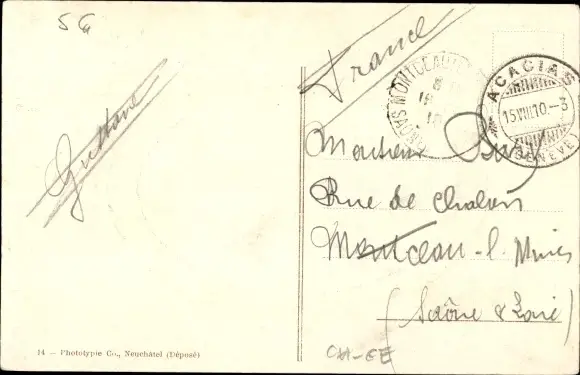 5 G
France
MONTCEAU
ACACIAS
15.VIII.10.-3
GENÈVE
Gustave
Monsieur
Rue de Chalon
Montceau-l. Mines
(Saône & Loire)
14 — Phototypie Co., Neuchâtel (Déposé)
CH-GE